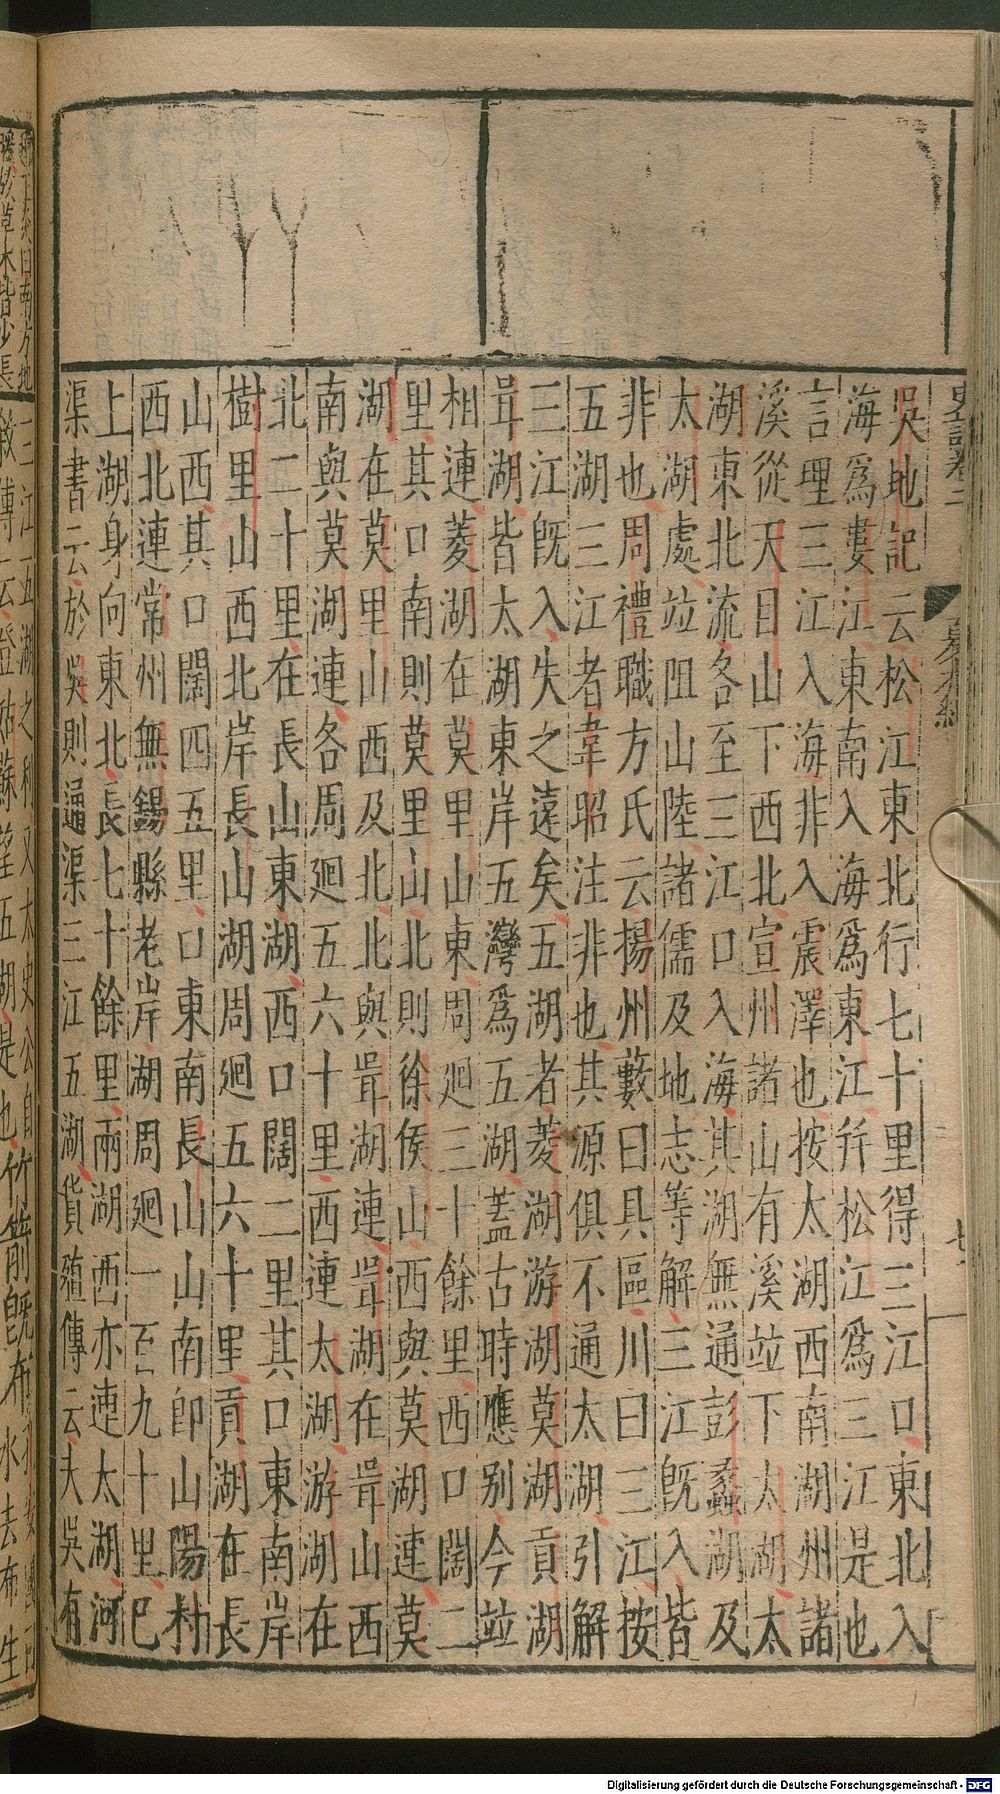 史記卷二 夏本紀
吳地記云松江東北行七十里得三江口東北入
海爲婁江東南入海爲東江幷松江爲三江是也
言理三江入海非入震澤也按太湖西南湖州諸
溪從天目山下西北宣州諸山有溪竝下太湖太
湖東北流各至三江口入海其湖無通彭蠡湖及
太湖處竝阻山陸諸儒及地志等解三江旣入皆
非也周禮職方氏云揚州藪曰具區川曰三江按
五湖三江者韋昭注非也其源俱不通太湖引解
三江旣入失之遠矣五湖者菱湖游湖莫湖貢湖
胥湖皆太湖東岸五灣爲五湖蓋古時應別今竝
相連菱湖在莫里山東周廻三十餘里西口闊二
里其口南則莫里山北則徐侯山西與莫湖連莫
湖在莫里山西及北北與胥湖連胥湖在胥山西
南與莫湖連各周廻五六十里西連太湖游湖在
北二十里在長山東湖西口闊二里其口東南岸
樹里山西北岸長山湖周廻五六十里貢湖在長
山西其口闊四五里口東南長山山南卽山陽村
西北連常州無錫縣老岸湖周廻一百九十里巳
上湖身向東北長七十餘里兩湖西亦連太湖河
渠書云於吳則通渠三江五湖貨殖傳云夫吳有
曰南方地
暖故草木皆少長
三江五湖之利又太史公自
敘傳云登姑蘇望五湖是也竹箭旣布
水去布生
Digitalisierung gefördert durch die Deutsche Forschungsgemeinschaft - DFG